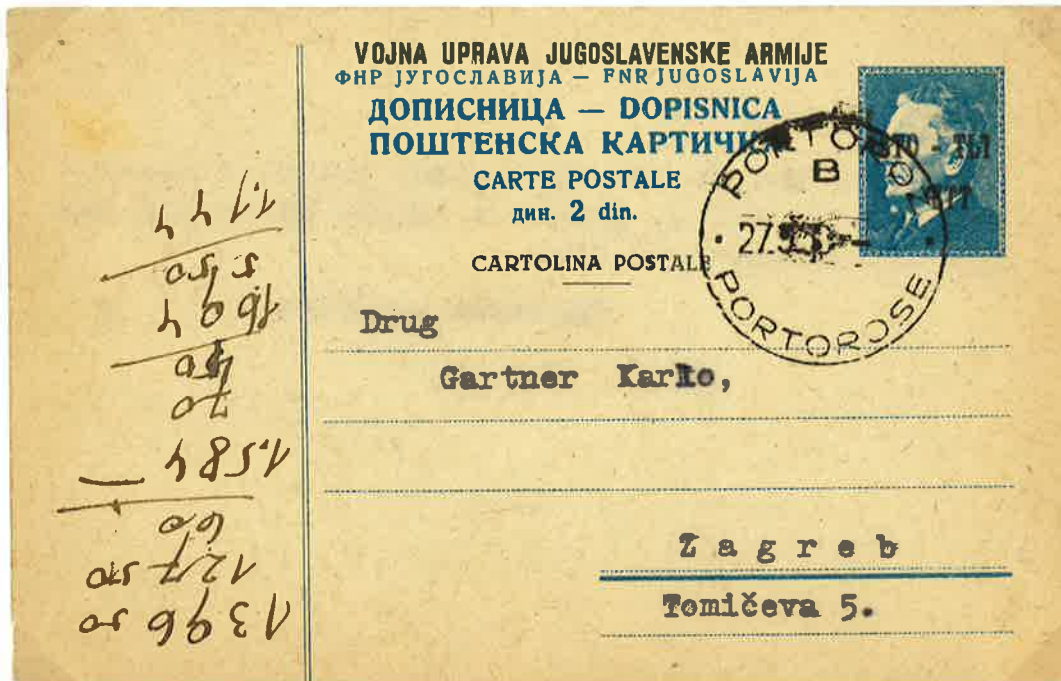 VOJNA UPRAVA JUGOSLAVENSKE ARMIJE
ФНР ЈУГОСЛАВИЈА — FNR JUGOSLAVIJA
ДОПИСНИЦА — DOPISNICA
ПОШТЕНСКА КАРТИЧКА
CARTE POSTALE
дин. 2 din.
CARTOLINA POSTALE
B
PORTOROSE
Drug
Gartner Karlo,
Zagreb
Tomičeva 5.
1396 50
127 50
60
1.584 —
70
40
1694
50
1.744